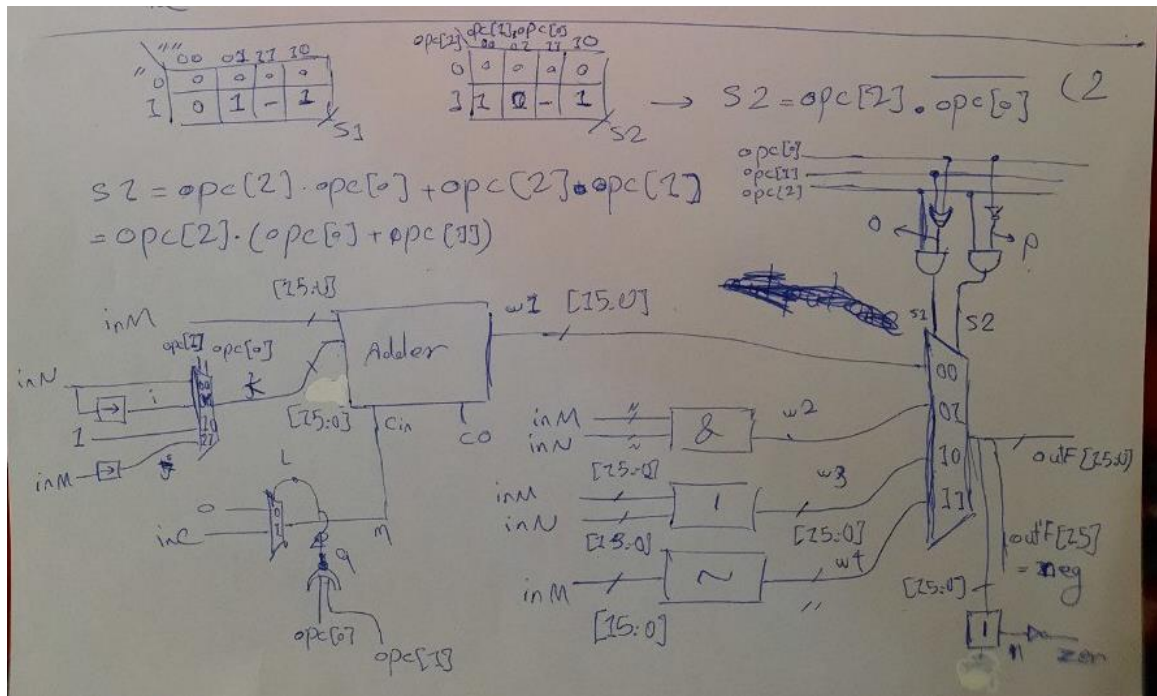 "" 00 01 11 10
" 0 0 0 0 0
1 0 1 - 1
S1
opc[2] opc[1],opc[0] 00 01 11 10
0 0 0 0 0
1 1 0 - 1
S2
→ S2 = opc[2] . opc[0] (2
S1 = opc[2] . opc[0] + opc[2] . opc[1]
= opc[2] . (opc[0] + opc[1])
opc[0]
opc[1]
opc[2]
o
p
S1
S2
[15:0]
inM
opc[1] opc[0]
inN
i
k
00
10
11
1
inM
j
[15:0]
Adder
Cin
CO
w1 [15:0]
L
0
inC
0
1
m
q
opc[0]
opc[1]
inM
inN
"
"
&
w2
[15:0]
inM
inN
|
w3
[15:0]
[15:0]
inM
~
w4
"
[15:0]
00
01
10
11
outF[15:0]
outF[15]
= neg
[15:0]
|
n
zer